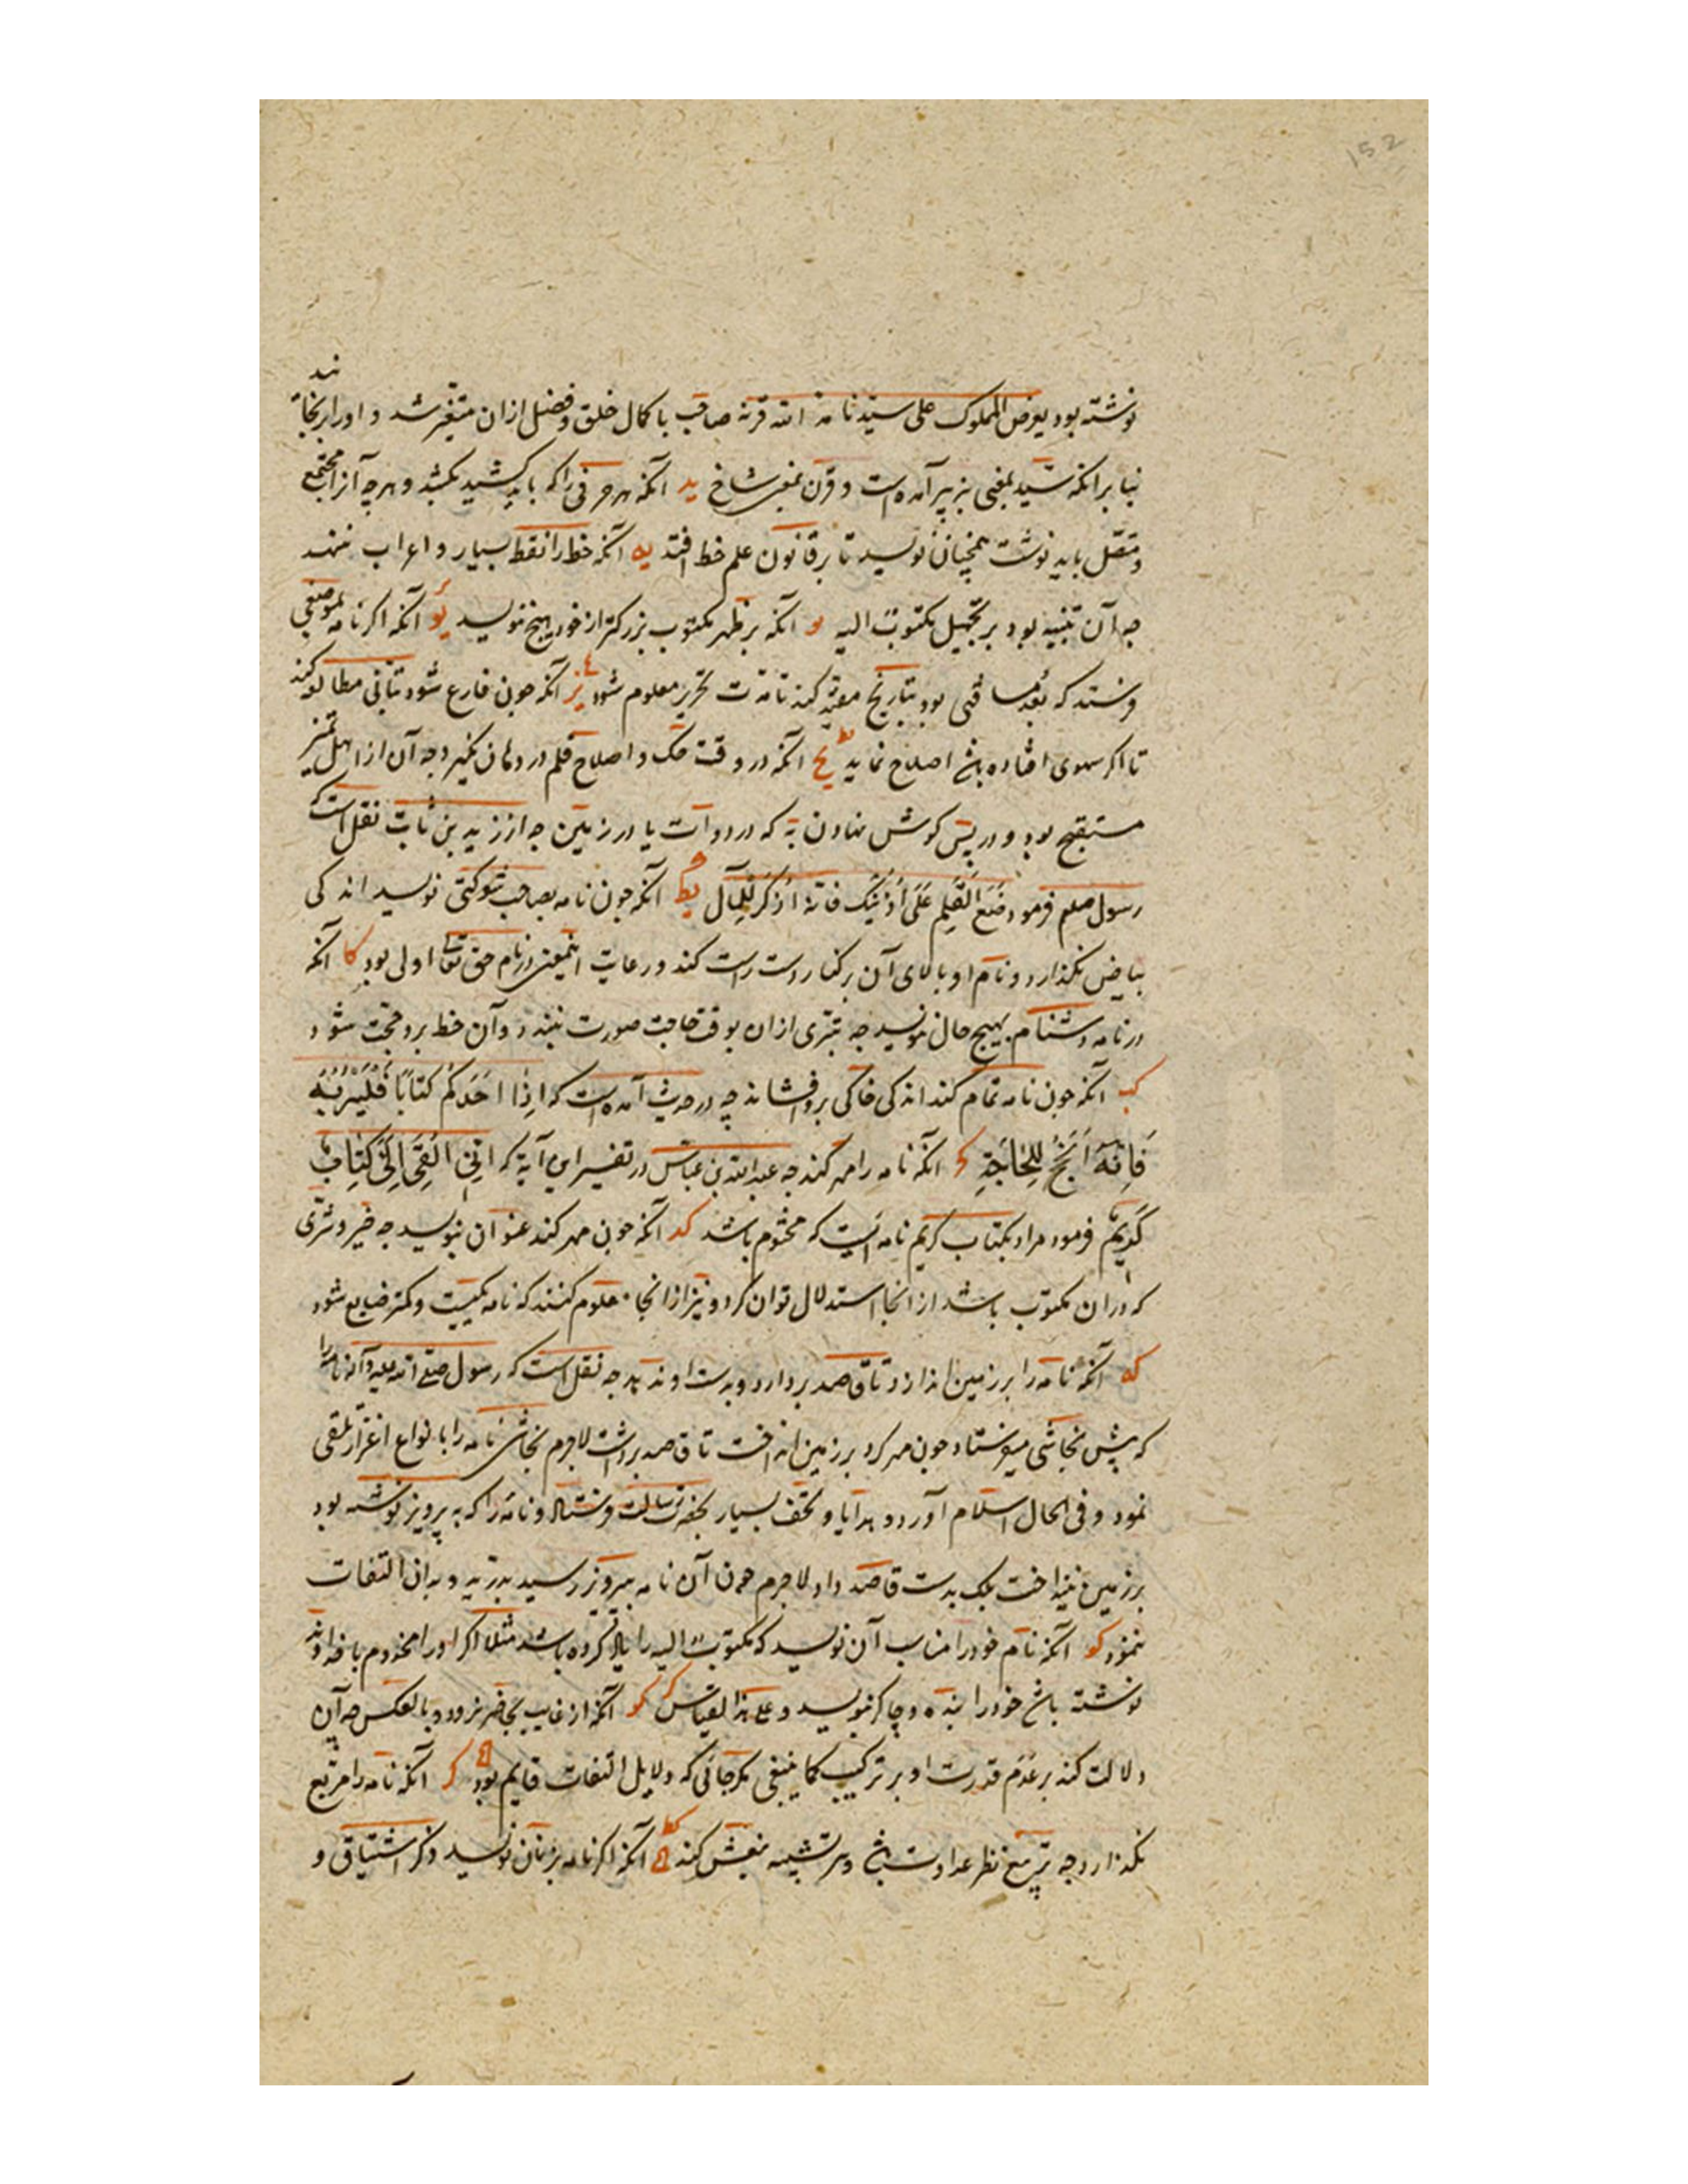 152
ند
نوشته بود یعرض المملوک علی سیدنا مد الله قرنه صاحب با کمال خلق و فضل ازان متغیر شد و او را برنجا
بنا بر انکه سید بمعنی بز پیر آمده است و قرن بمعنی شاخ ید آنکه هر حرفی را که باید کشید بکشد و هرچه آنرا مجتمع
و متصل باید نوشت همچنان نویسد تا بر قانون علم خط افتد یه آنکه خط را نقط بسیار و اعراب ننهد
چه آن تنبیه بود بر تجهیل مکتوب الیه یو آنکه بر ظهر مکتوب بزرکتر از خود هیچ ننویسد یو آنکه اکر نامه بموضعی
فرستد که بعد مسافتی بود بتاریخ مقید کند تا مدت تحریر معلوم شود یز آنکه چون فارغ شود بتانی مطالعه کند
تا اکر سهوی افتاده باشد اصلاح نماید یح آنکه در وقت حک و اصلاح قلم در دهان نکیرد چه آن از اهل تمیز
مستقبح بود و در پس کوش نهادن به که در دوات یا در زمین چه از زید بن ثابت نقل است که
رسول صلعم فرمود ضع القلم علی اذنیک فانه اذکر للمآل یط آنکه چون نامه بصاحب شوکتی نویسد اندکی
بیاض بکذارد و نام او بالای آن بر کنار دست راست کند و رعایت اینمعنی در نام حق تعالی اولی بود کا آنکه
در نامه دشنام بهیچ حال ننویسد چه تبری ازان بوقت حاجت صورت نبندد و آن خط برو حجت شود
کب آنکه چون نامه تمام کند اندکی خاکی برو افشاند چه در حدیث آمده است که اذا احدکم کتابا فلیتربه
فانه انجح للحاجة کج آنکه نامه را مهر کند چه عبدالله بن عباس در تفسیر این آیة که انی القی الی کتاب
کریم فرمود مراد بکتاب کریم نامه ایست که مختوم باشد کد آنکه چون مهر کند عنوان بنویسد چه خیر و شری
که دران مکتوب باشد از انجا استدلال توان کرد و نیز ازانجا معلوم کنند که نامه کیست و کمتر ضایع شود
که آنکه نامه را بر زمین اندازد تا قاصد بردارد و بدست او ندهد چه نقل است که رسول صلی الله علیه و آله نامه را
که پیش نجاشی میفرستاد چون مهر کرد بر زمین انداخت تا قاصد برداشت لاجرم نجاشی نامه را بانواع اعزاز تلقی
نمود و فی الحال اسلام آورد و هدایا و تحف بسیار بحضرت رسالت فرستاد و نامه را که به پرویز نوشته بود
بر زمین نینداخت بلک بدست قاصد داد لاجرم چون آن نامه بپرویز رسید بدرید و بدان التفات
ننمود کو آنکه نام خود را مناسب آن نویسد که مکتوب الیه را یاد کرده باشد مثلا اکر او را مخدوم یا خداوند
نوشته باشد خود را بنده و چاکر نویسد و علی هذا القیاس کو آنکه از غایب بحاضر نرود و بالعکس چه آن
دلالت کند بر عدم قدرت او بر ترکیب کما ینبغی مکر جائی که دلایل التفات قایم بود کز آنکه نامه را مربع
نکذارد چه تربیع نظر عداوت باشد و سر تشبیه بنعش کند آنکه اکر نامه بزنان نویسد ذکر اشتیاق و